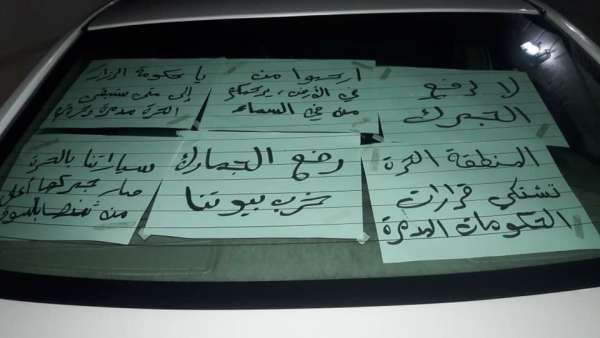 لا لرفع
الجمرك
ارحموا من
في الأرض، يرحمكم
من في السماء
يا حكومة الرزاز
إلى متى ستبقى
الحرة مدمرة
المنطقة الحرة
تشتكي قرارات
الحكومات المدمرة
رفع الجمارك
خرب بيوتنا
سياراتنا بالحرة
صار جمركها أعلى
من ثمنها بالسوق